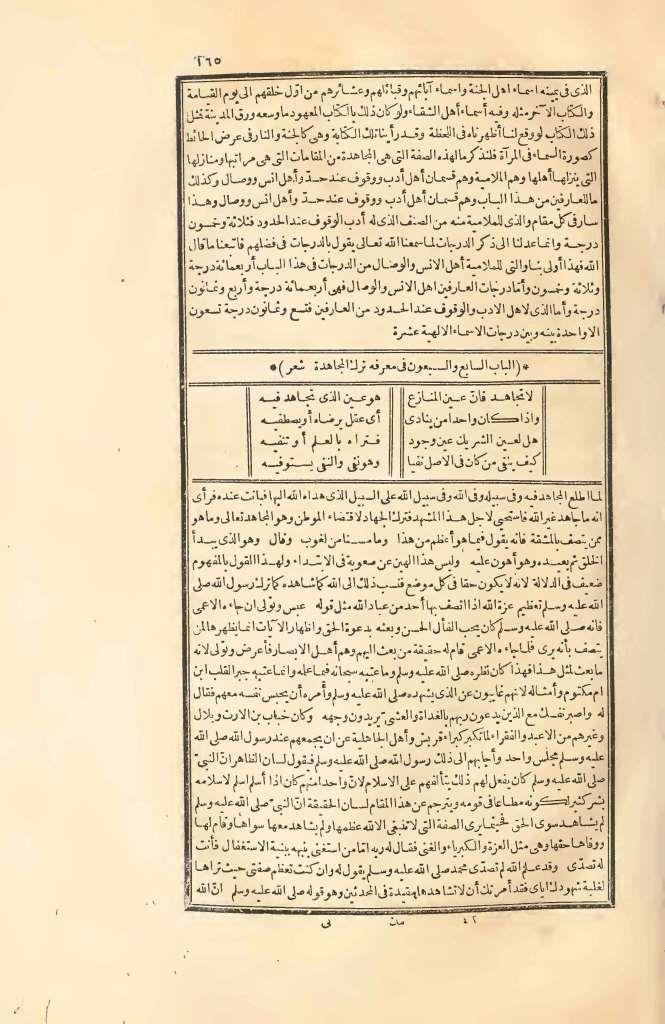 ١٦٥
الذى فى يمينه اسماء اهل الجنة واسماء آبائهم وقبائلهم وعشائرهم من اوّل خلقهم الى يوم القيامة
والكتاب الآخر مثله وفيه أسماء أهل الشقاء ولو كان ذلك بالكتاب المعهود ما وسعه ورق المدينة فمثل
ذلك الكتاب لو وقع لنا أظهرناه فى اللحظة وقد رأينا تلك الكتابة وهى كالجنة والنار فى عرض الحائط
كصورة السماء فى المرآة فلنذكر ما لهذه الصفة التى هى المجاهدة من المقامات التى هى مراتبها ومنازلها
التى ينزلها أهلها وهم الملامية وهم قسمان أهل أدب ووقوف عند حدّ وأهل انس ووصال وكذلك
ما للعارفين من هذا الباب وهم قسمان أهل أدب ووقوف عند حدّ وأهل انس ووصال وهذا
سار فى كل مقام والذى للملامية منه من الصنف الذى له أدب الوقوف عند الحدود فثلاثة وخمسون
درجة وانما عدلنا الى ذكر الدرجات لما سمعنا الله تعالى يقول بالدرجات فى فضلهم فاتبعنا ما قال
الله فهذا أولى بنا والتى للملامية أهل الانس والوصال من الدرجات فى هذا الباب أربعمائة درجة
وثلاثة وخمسون وأما درجات العارفين اهل الانس والوصال فهى أربعمائة درجة وأربع وثمانون
درجة وأما الذى لاهل الادب والوقوف عند الحدود من العارفين فتسع وثمانون درجة تسعون
الا واحدة بينه وبين درجات الاسماء الالهية عشرة
*(الباب السابع والسبعون فى معرفة ترك المجاهدة شعر)*
لا تجاهد فانّ عين المنازع هو عين الذى تجاهد فيه
واذا كان واحدا من ينادى أى عقل يرضاه أو يصطفيه
هل لعين الشريك عين وجود فتراه بالعلم أو تنفيه
كيف ينفى من كان فى الاصل نفيا وهو نفى والنفى يستوفيه
لما اطلع المجاهد فيه وفى سبيله وفى الله وفى سبيل الله على السبيل الذى هداه الله اليها فبانت عنده فرأى
انه ما جاهد غير الله فاستحيى لاجل هذا المشهد فترك الجهاد لاقتضاء الموطن وهو المجاهد تعالى وما هو
ممن يتصف بالمشقة فانه يقول فيما هو أعظم من هذا وما مسنا من لغوب وقال وهو الذى يبدأ
الخلق ثم يعيده وهو أهون عليه وليس هذا الهين عن صعوبة فى الابتداء ولهذا القول بالمفهوم
ضعيف فى الدلالة لانه لا يكون حقا فى كل موضع فنسب ذلك الى الله كما شاهده كما ترك رسول الله صلى
الله عليه وسلم تعظيم عزة الله اذا اتصف بها أحد من عباد الله مثل قوله عبس وتولى ان جاءه الاعمى
فانه صلى الله عليه وسلم كان يحب الفأل الحسن وبعثه بدعوة الحق واظهار الآيات انما يظهرها لمن
يتصف بأنه يرى فلما جاءه الاعمى قام له حقيقة من بعث اليهم وهم أهل الابصار فأعرض وتولى لانه
ما بعث لمثل هذا فهذا كان نظره صلى الله عليه وسلم وما عتبه سبحانه فيما عله وانما عتبه جبر القلب ابن
ام مكتوم وأمثاله لانهم غائبون عن الذى يشهده صلى الله عليه وسلم وأمره أن يحبس نفسه معهم فقال
له واصبر نفسك مع الذين يدعون ربهم بالغداة والعشىّ يريدون وجهه وكان خباب بن الارت وبلال
وغيرهم من الاعبد والفقراء لما تكبر كبراء قريش وأهل الجاهلية عن ان يجمعهم عند رسول الله صلى الله
عليه وسلم مجلس واحد وأجابهم الى ذلك رسول الله صلى الله عليه وسلم فيقول لسان الظاهر انّ النبىّ
صلى الله عليه وسلم كان يفعل لهم ذلك يتألفهم على الاسلام لانّ واحدا منهم كان اذا أسلم اسلم لاسلامه
بشر كثير لكونه مطاعا فى قومه ويترجم عن هذا المقام لسان الحقيقة انّ النبىّ صلى الله عليه وسلم
لم يشاهد سوى الحق فحيثما يرى الصفة التى لا تنبغى الا لله عظمها ولم يشاهد معها سواها وقام لها
ووفاها حقها وهى مثل العزة والكبرياء والغنى فقال له ربه اما من استغنى ينبهه ببنية الاستفعال فأنت
له تصدّى وقد علم الله لم تصدّى محمد صلى الله عليه وسلم يقول له وان كنت تعظم صفتى حيث تراها
لغلبة شهودك اياى فقد أمرتك أن لا تشاهدها مقيدة فى المحدثين وهو قوله صلى الله عليه وسلم انّ الله
٤٢ مك نى